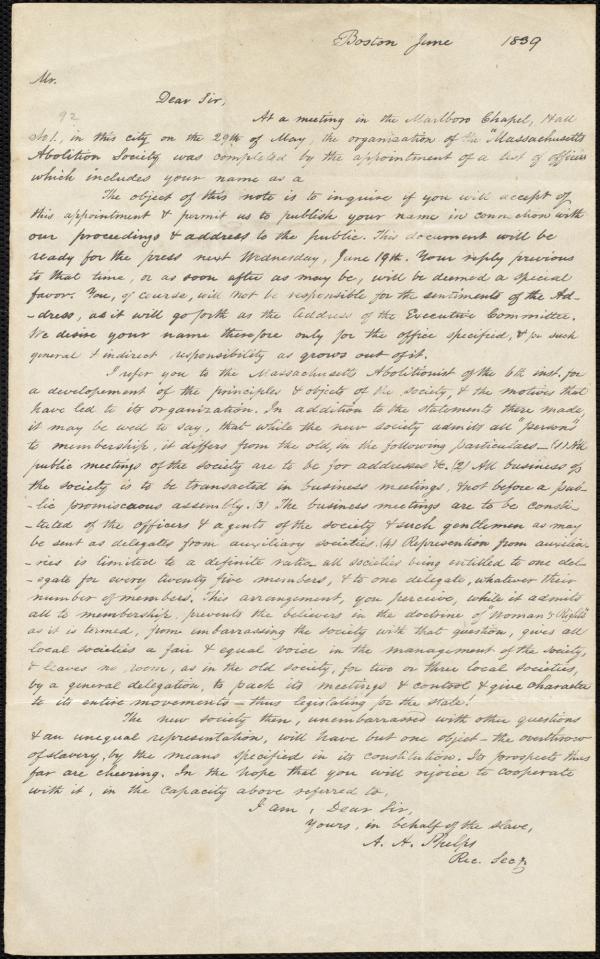 Boston June 1839
Mr.
Dear Sir,
92
At a meeting in the Marlboro Chapel, Hall
No. 1, in this city on the 29th of May, the organization of the "Massachusetts
Abolition Society was completed by the appointment of a list of officers
which includes your name as a
The object of this note is to inquire if you will accept of
this appointment & permit us to publish your name in connection with
our proceedings & address to the public. This document will be
ready for the press next Wednesday, June 19th. Your reply previous
to that time, or as soon after as may be, will be deemed a special
favor. You, of course, will not be responsible for the sentiments of the Ad-
-dress, as it will go forth as the Address of the Executive Committee.
We desire your name therefore only for the office specified, & for such
general & indirect responsibility as grows out of it.
I refer you to the Massachusetts Abolitionist of the 6th inst. for
a developement of the principles & objects of the society, & the motives that
have led to its organization. In addition to the statements there made,
it may be well to say, that while the new society admits all "persons"
to membership, it differs from the old, in the following particulars - (1) All
public meetings of the society are to be for addresses &c. (2) All business of
the society is to be transacted in business meetings, & not before a pub-
-lic promiscuous assembly. (3) The business meetings are to be consti-
-tuted of the officers & agents of the society & such gentlemen as may
be sent as delegates from auxiliary societies. (4) Represention from auxilia-
-ries is limited to a definite ratio - all societies being entitled to one del-
-egate for every twenty five members, & to one delegate, whatever their
number of members. This arrangement, you perceive, while it admits
all to membership, prevents the believers in the doctrine of "Woman's Rights"
as it is termed, from embarrassing the society with that question, gives all
local societies a fair & equal voice in the management of the society,
& leaves no room, as in the old society, for two or three local societies,
by a general delegation, to pack its meetings & control & give character
to its entire movements - thus legislating for the state!
The new society then, unembarrassed with other questions
& an unequal representation, will have but one object - the overthrow
of slavery, by the means specified in its constitution. Its prospects thus
far are cheering. In the hope that you will rejoice to cooperate
with it, in the capacity above referred to,
I am, Dear Sir,
Yours, in behalf of the slave,
A. A. Phelps
Rec. Secy.